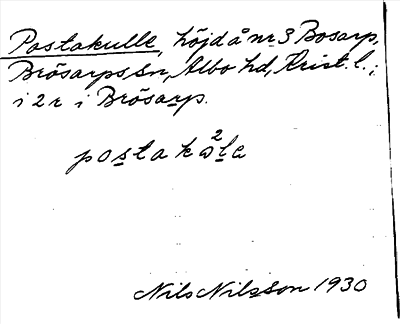 Postakulle, höjd å nr 3 Bosarp,
Brösarps sn, Albo hd, Krist. l.;
i 2 r i Brösarp.
postakɷ²lɐ
Nils Nilsson 1930